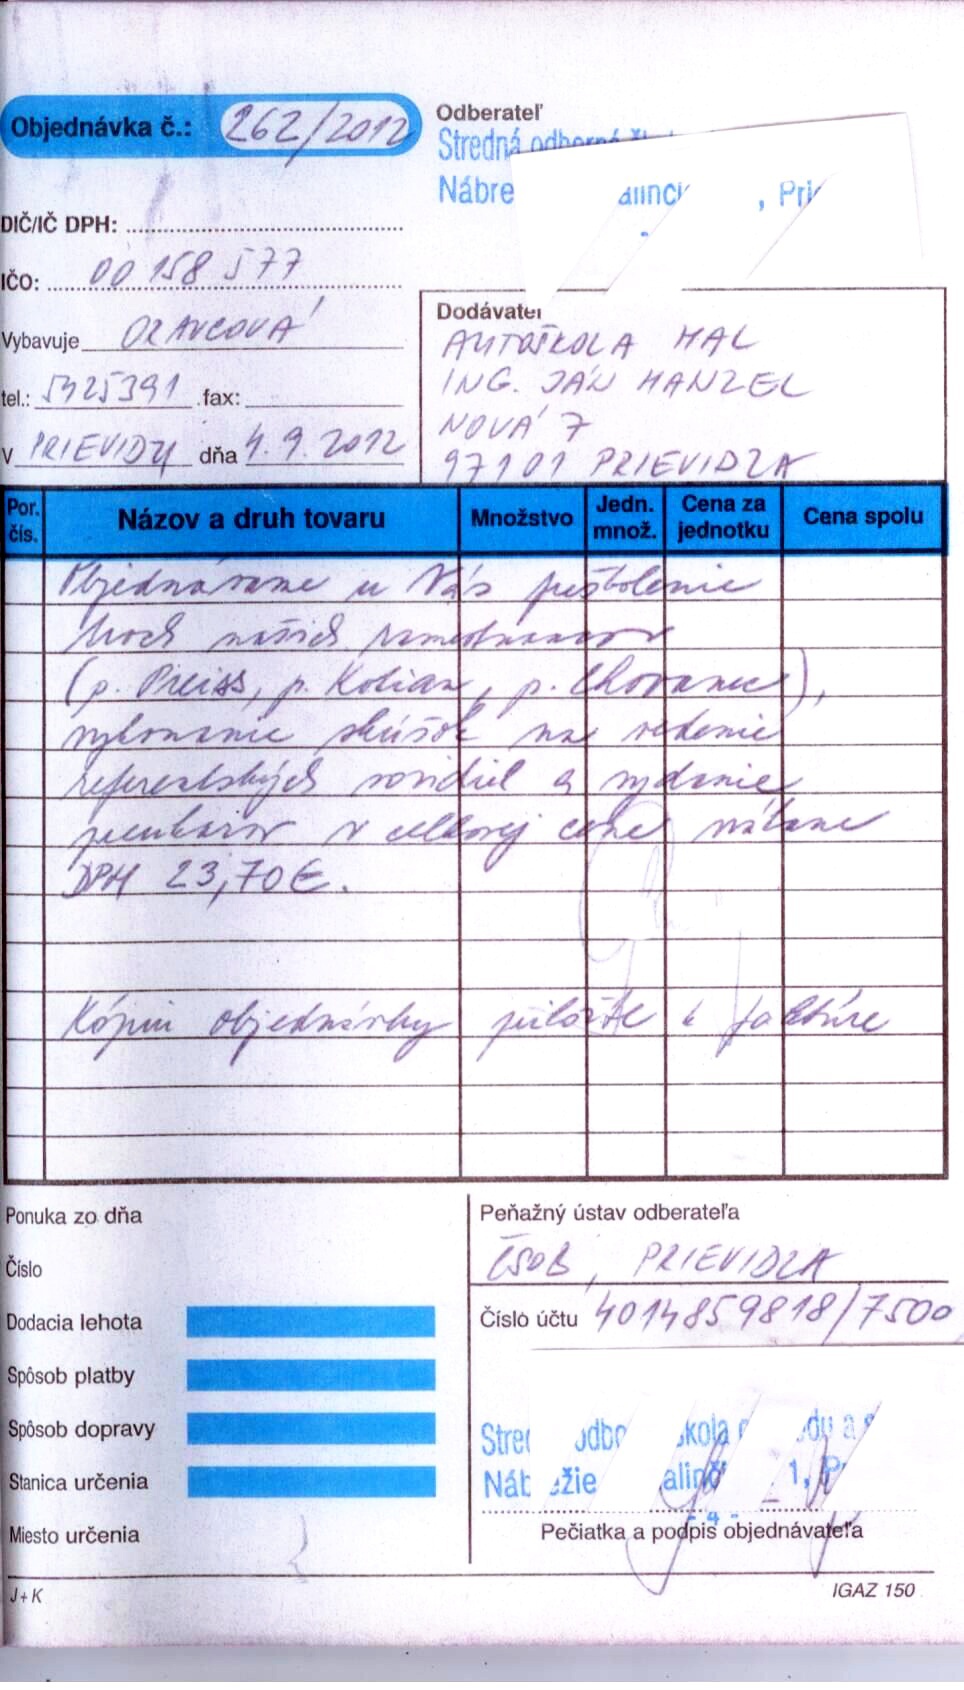 Objednávka č.: 262/2012
Odberateľ
Stredná odborná
Nábre alinči , Pri
DIČ/IČ DPH:
IČO: 00158577
Vybavuje ORAVCOVÁ
tel.: 5425391 fax:
V PRIEVIDZI dňa 4.9.2012
Dodávateľ
AUTOŠKOLA MAL
ING. JÁN HANZEL
NOVÁ 7
97101 PRIEVIDZA
Por. čís. Názov a druh tovaru Množstvo Jedn. množ. Cena za jednotku Cena spolu
Objednávame u Vás preškolenie
troch našich zamestnancov
(p. Preiss, p. Kolian, p. Chovanec),
vykonanie skúšok na vedenie
referentských vozidiel a vydanie
preukazov v celkovej cene vrátane
DPH 23,70€.
Kópiu objednávky priložte k faktúre
Ponuka zo dňa
Číslo
Dodacia lehota
Spôsob platby
Spôsob dopravy
Stanica určenia
Miesto určenia
Peňažný ústav odberateľa
ČSOB, PRIEVIDZA
Číslo účtu 4014859818/7500
Stre odbo škola o odu a s
Náb ežie alinč 1, P
- 4 -
Pečiatka a podpis objednávateľa
J+K
IGAZ 150